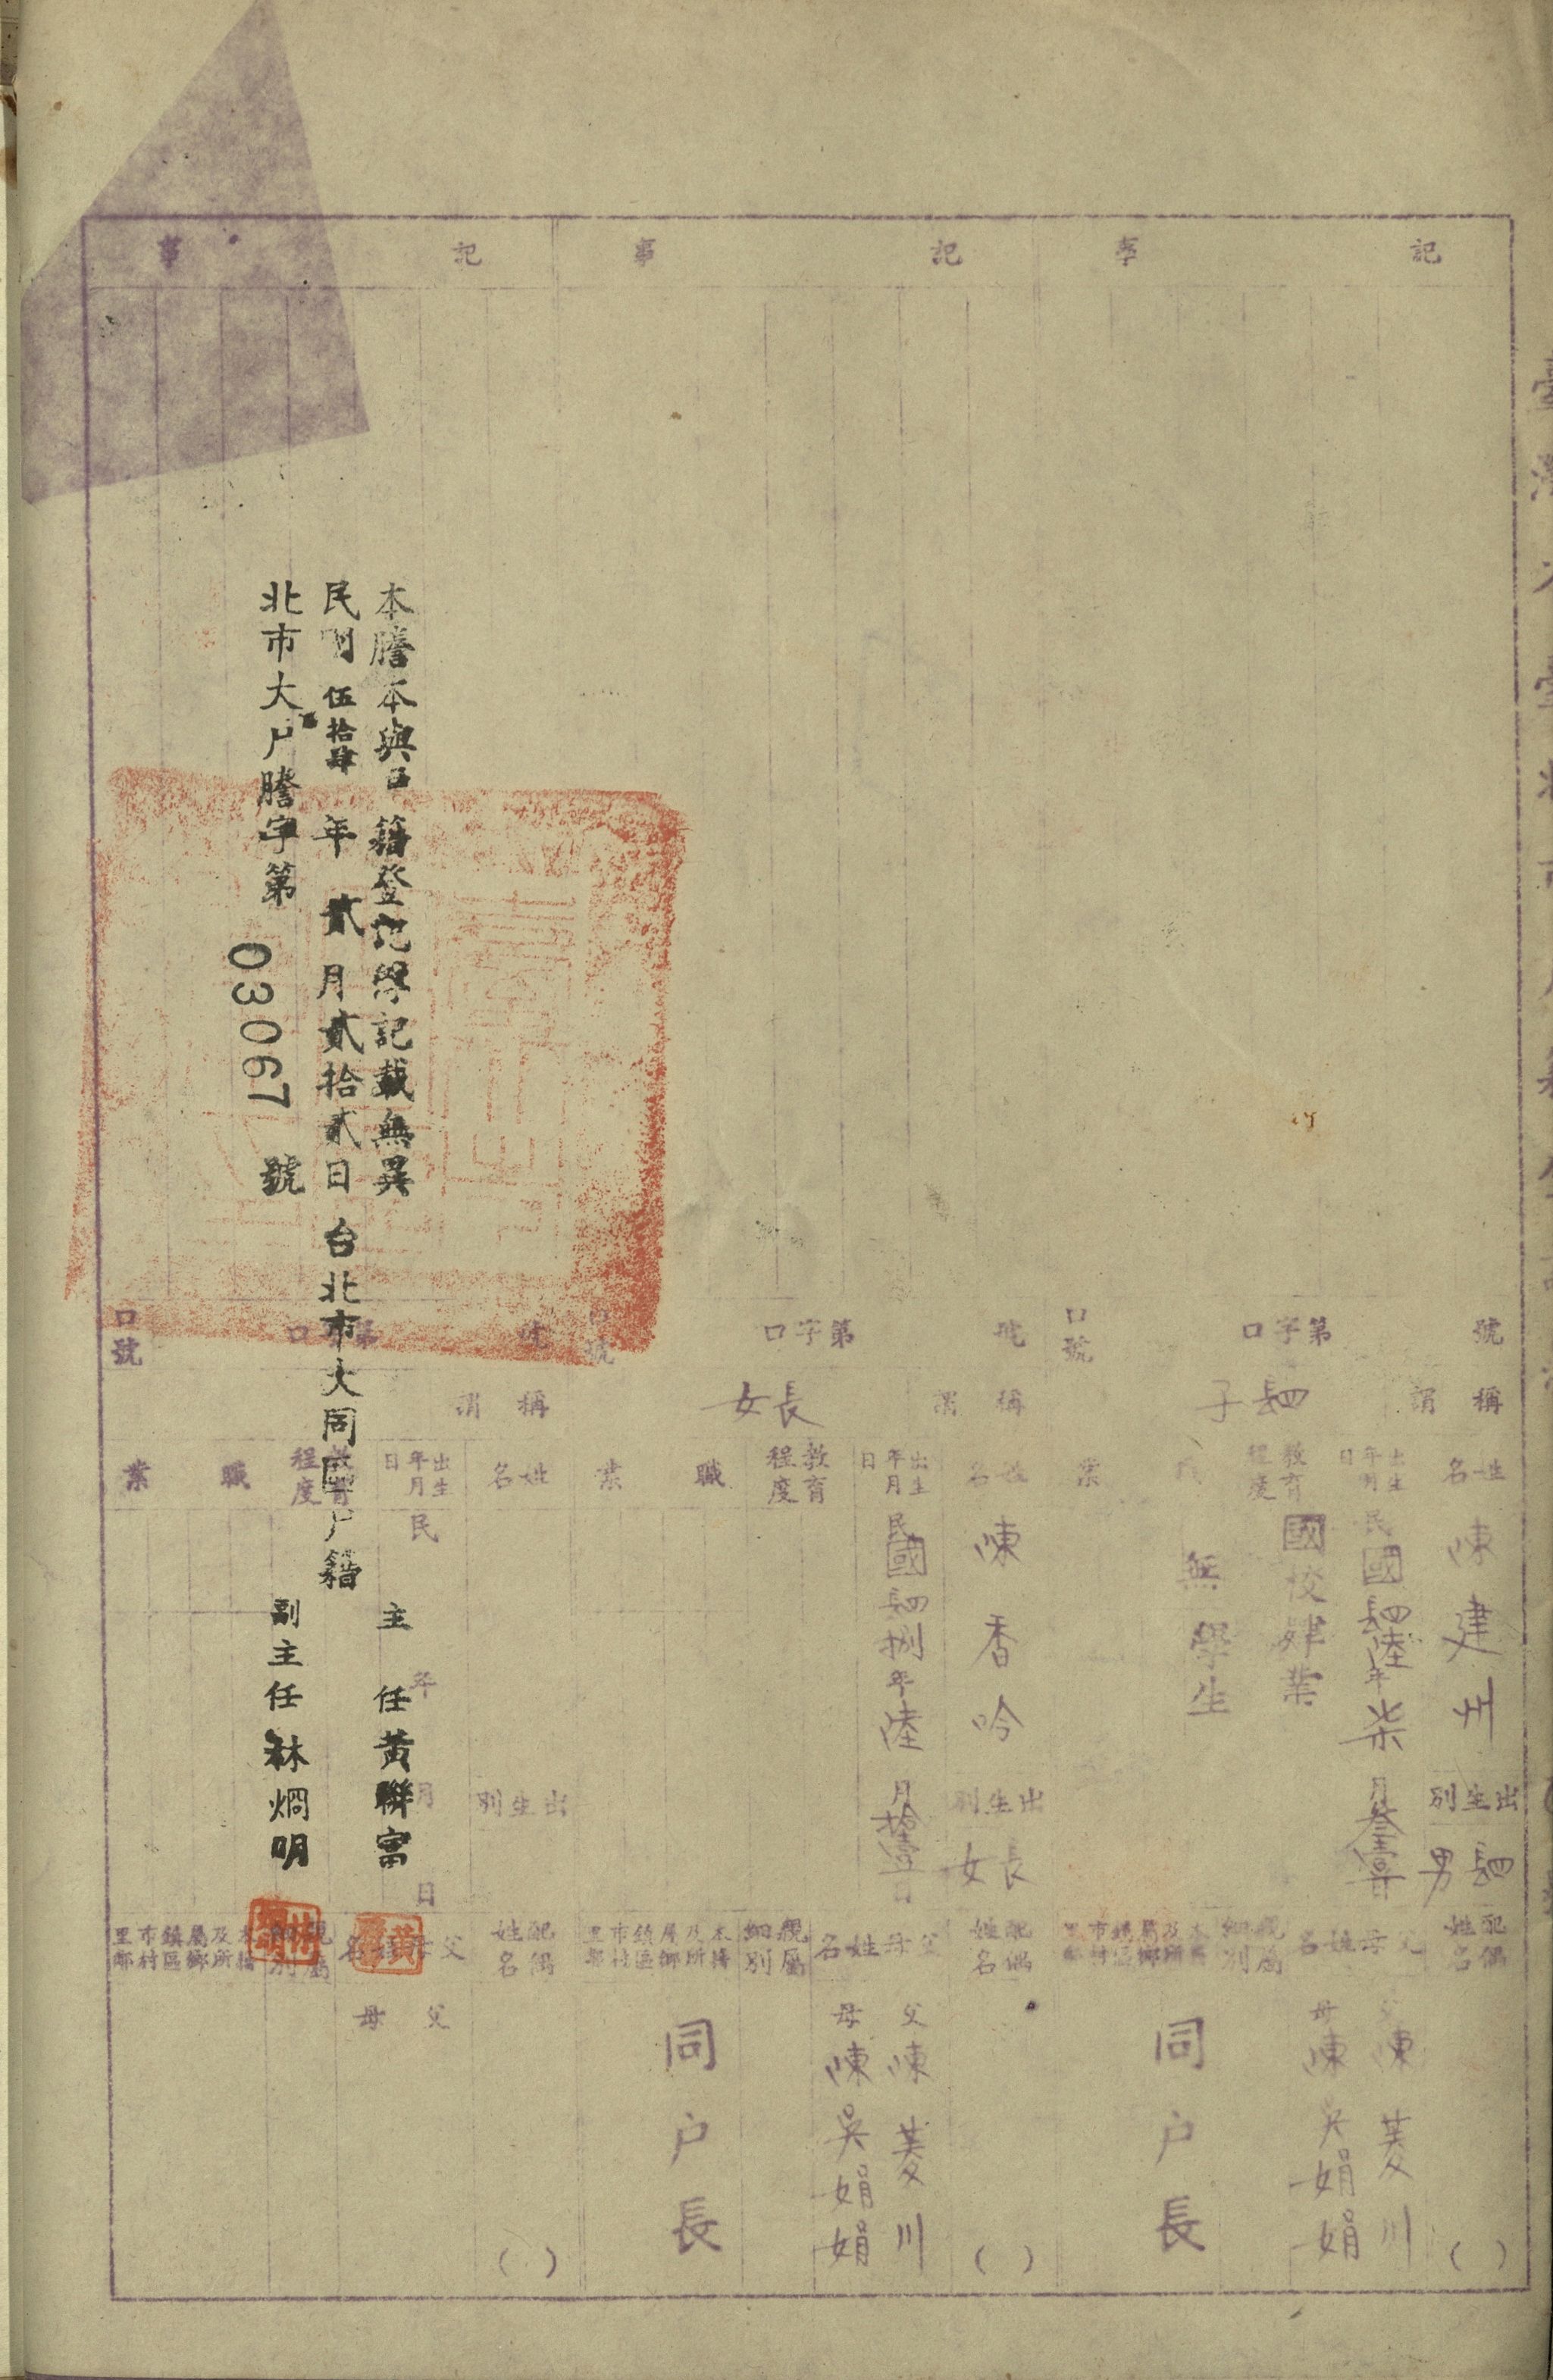 記事
號
第字口
口號
稱謂
肆子
姓名
陳建州
出生別
肆男
出生年月日
民國肆陸年柒月叁壹日
教育程度
國校肄業
職業
無
學生
配偶姓名
( )
父母姓名
父 陳菱川
母 陳吳娟娟
親屬細別
本籍及所屬鄉鎮區市村里鄰
同户長
記事
號
第字口
口號
稱謂
長女
姓名
陳香吟
出生別
長女
出生年月日
民國肆捌年陸月拾壹日
教育程度
職業
配偶姓名
( )
父母姓名
父 陳菱川
母 陳吳娟娟
親屬細別
本籍及所屬鄉鎮區市村里鄰
同户長
記事
號
口號
稱謂
姓名
出生別
出生年月日
民 年 月 日
教育程度
職業
配偶姓名
( )
父母姓名
父
母
本謄本與户籍登記簿記載無異
民國伍拾肆年貳月貳拾貳日 台北市大同區户籍
主任黃聯富
副主任林炯明
北市大户謄字第03067號